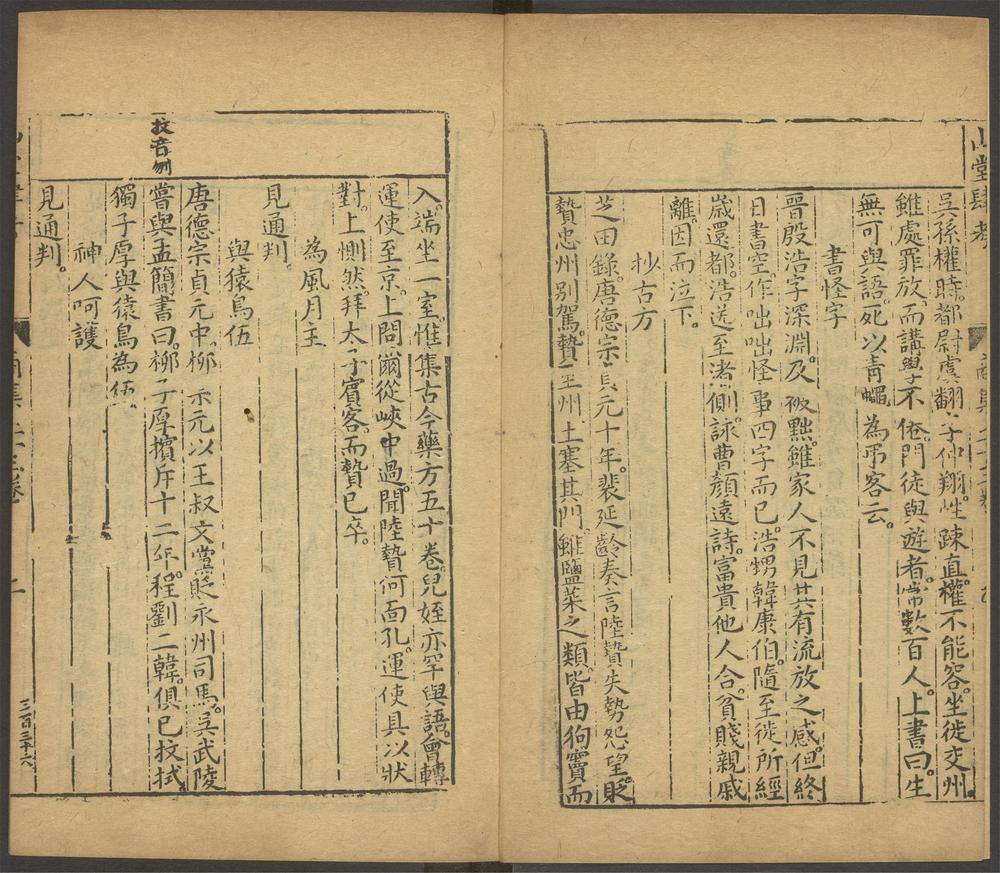 山堂肆考
吳孫權時。都尉虞翻字仲翔。性疎直。權不能容。坐徙交州。
雖處罪放。而講學不倦。門徒與遊者。常數百人。上書曰。生
無可與語。死以青蠅為吊客云。
書怪字
晉殷浩字深淵。及被黜。雖家人不見其有流放之感。但終
日書空。作咄咄怪事四字而已。浩甥韓康伯。隨至徙所經
歲還都。浩送至渚側。詠曹顏遠詩。富貴他人合。貧賤親戚
離。因而泣下。
抄古方
芝田錄。唐德宗貞元十年。裴延齡奏言陸贄失勢怨望。貶
贄忠州別駕。贄至州。土塞其門。雖鹽菜之類。皆由狗竇而
入。端坐一室。惟集古今藥方五十卷。兒姪亦罕與語。會轉
運使至京。上問爾從峽中過。聞陸贄何面孔。運使具以狀
對。上惻然。拜太子賓客。而贄已卒。
為風月主
見通判。
與猿鳥伍
唐德宗貞元中。柳宗元以王叔文黨貶永州司馬。吳武陵
嘗與孟簡書曰。柳子厚擯斥十二年。程劉二韓。俱已抆拭
獨子厚與猿鳥為伍
抆音刎
神人呵護
見通判。
二
三百三十六